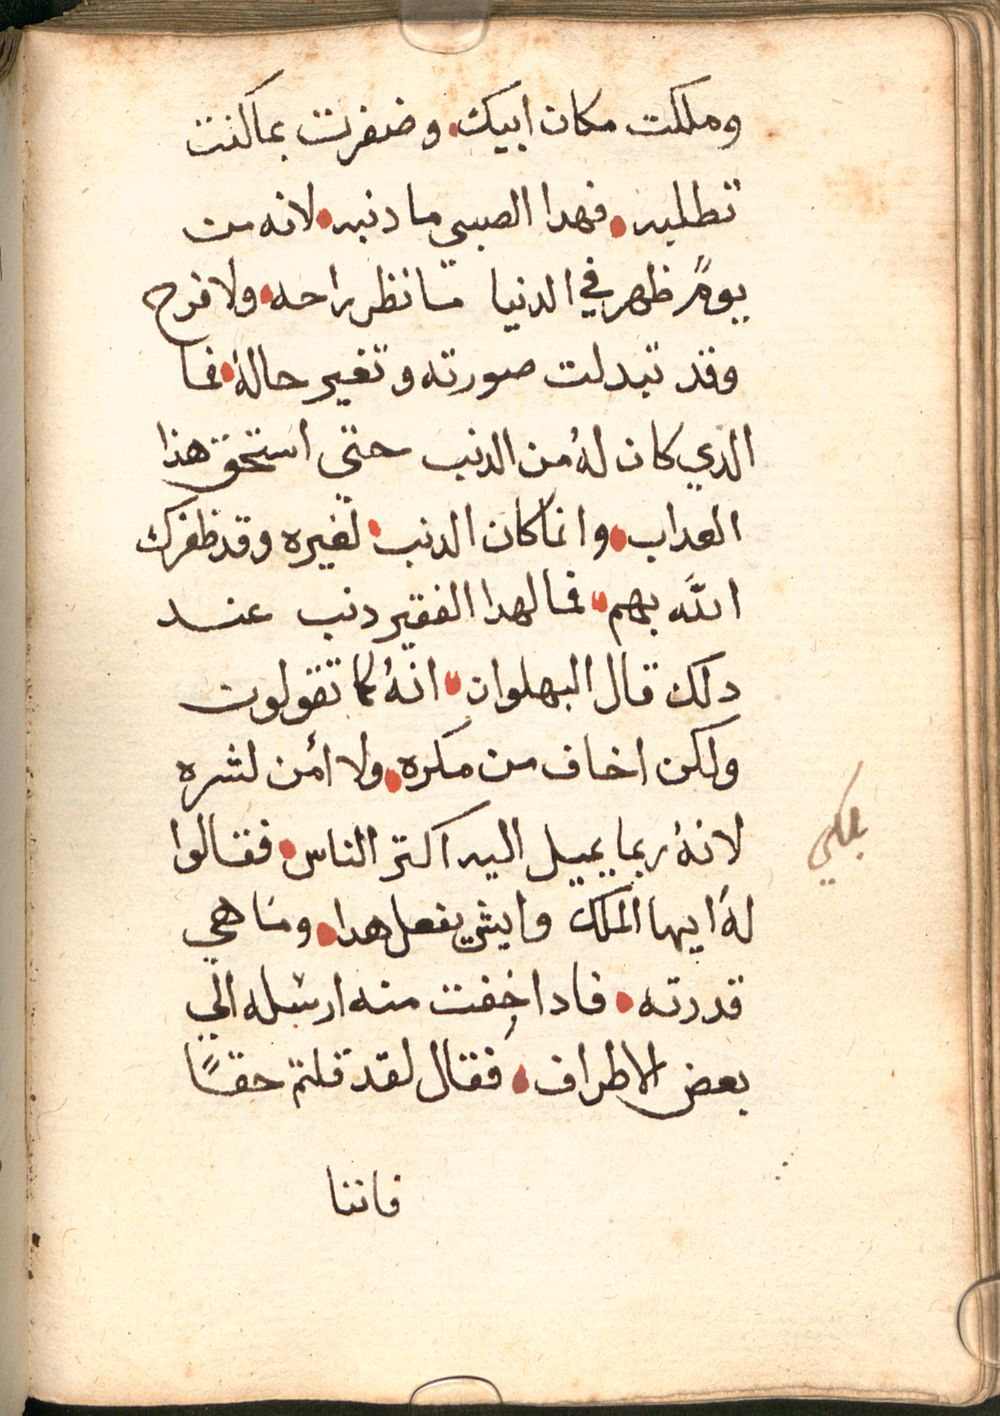 وملكت مكان ابيك. وضفرت بماكنت
تطلبه. فهدا الصبي ما دنبه. لانه من
يومً ظهر في الدنيا ما نظر راحه. ولا فرح
وقد تبدلت صورته وتغير حالهُ. فما
الدي كان لهُ من الدنب حتي استحق هذا
العداب. وانما كان الدنب. لغيره وقد ظفرك
اللَّه بهم. فما لهدا الفقير دنب عند
دلك قال البهلوان. انهُ كما تقولون
ولكن اخاف من مكره. ولا أمن لشره
لانهُ ربما يميل اليه اكتر الناس. فقالوا
لهُ ايها الملك وايش يفعل هدا. وما هي
قدرته. فادا خفت منه ارسله الي
بعض الاطراف. فقال لقد قلتم حقًا
فاننا